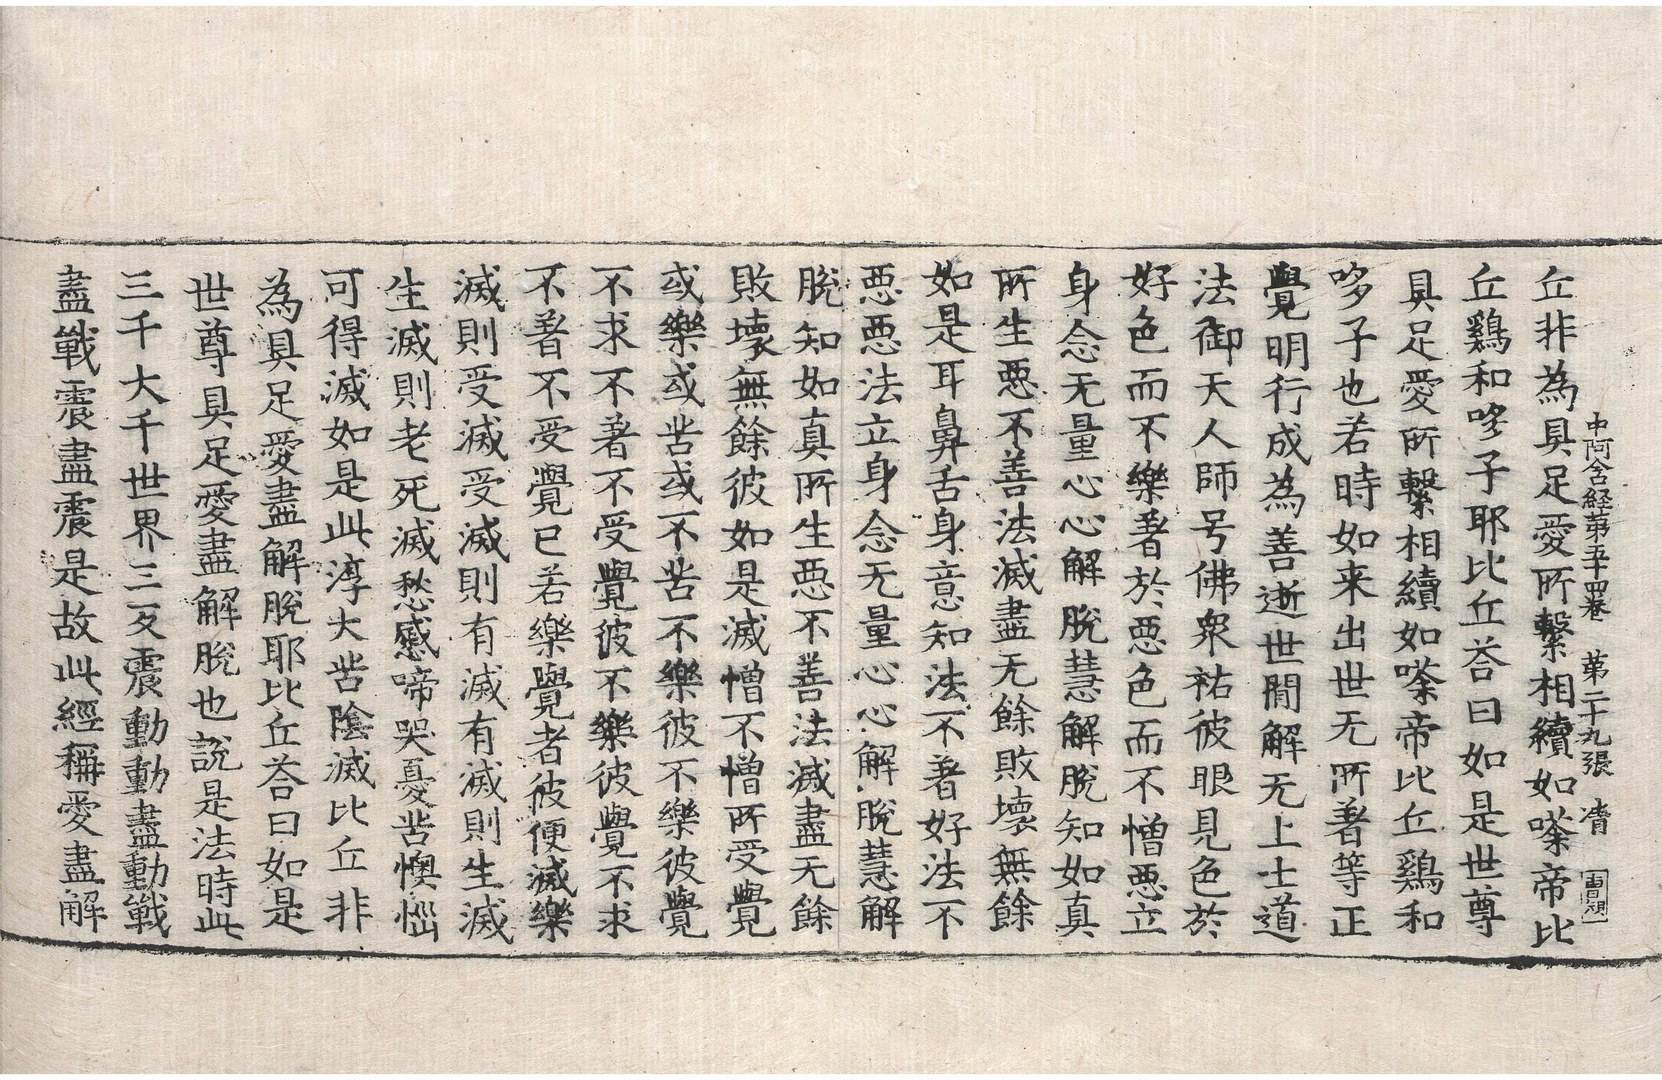 中阿含経第五十四卷 第二十九張 凊
丘非為具足愛所繫相續如嗏帝比
丘鷄和哆子耶比丘荅曰如是世尊
具足愛所繫相續如嗏帝比丘鷄和
哆子也若時如来出世无所著等正
覺明行成為善逝世間解无上士道
法御天人師号佛衆祐彼眼見色於
好色而不樂著於惡色而不憎惡立
身念无量心心解脫慧解脫知如真
所生惡不善法滅盡无餘敗壞無餘
如是耳鼻舌身意知法不著好法不
惡惡法立身念无量心心解脫慧解
脫知如真所生惡不善法滅盡无餘
敗壞無餘彼如是滅憎不憎所受覺
或樂或苦或不苦不樂彼不樂彼覺
不求不著不受覺彼不樂彼覺不求
不著不受覺已若樂覺者彼便滅樂
滅則受滅受滅則有滅有滅則生滅
生滅則老死滅愁慼啼哭憂苦懊惱
可得滅如是此淳大苦陰滅比丘非
為具足愛盡解脫耶比丘荅曰如是
世尊具足愛盡解脫也說是法時此
三千大千世界三反震動動盡動戰
盡戰震盡震是故此經稱愛盡解